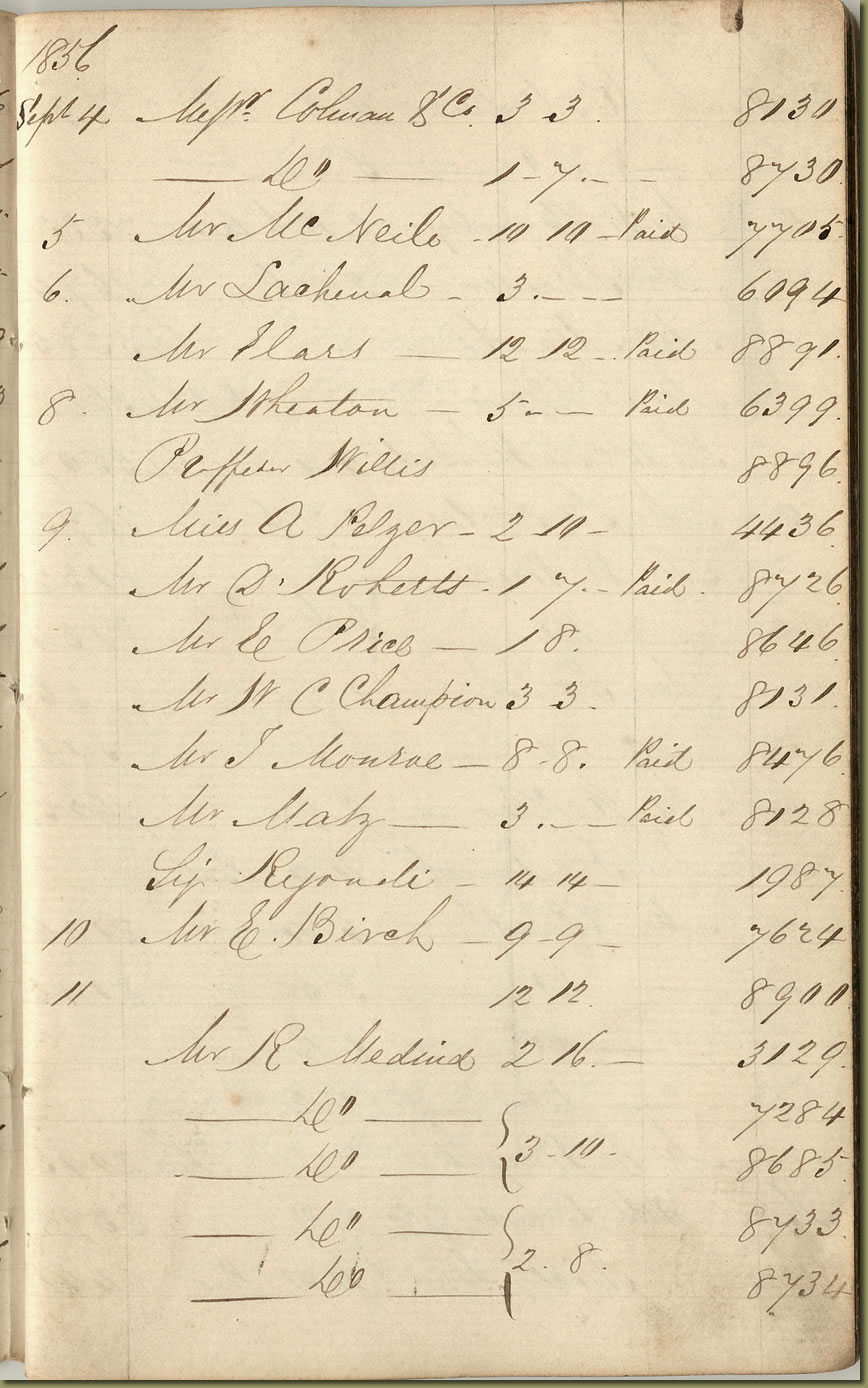 1856
Sept 4 Messrs. Colman & Co. 3 3 . 8130
— Do — 1 - 7. - - 8730
5 Mr McNeile - 10 10 - Paid 7705
6. Mr Lachenal - 3. - - - 6094
Mr — 12 12 - Paid 8891.
8. Mr Wheaton - 5 - - Paid 6399.
Proffesser Willis 8896.
9. Miss A Pelzer - 2 10 - 4436
Mr D. Roberts - 1 7. - Paid . 8726
Mr E Price — 1 8. 8646
Mr W C Champion 3 3 . 8131.
Mr J Monroe — 8 - 8. Paid 8476
Mr Matz — 3. - — Paid 8128
Sig Regondi - 14 14 — 1987.
10 Mr E. Birch - 9 - 9 - 7624
11 12 12. 8900
Mr R Medina 2 16. — 3129.
— Do — 7284
— Do — } 3 - 10 - 8685
— Do — 8733.
— Do — } 2. 8. 8734